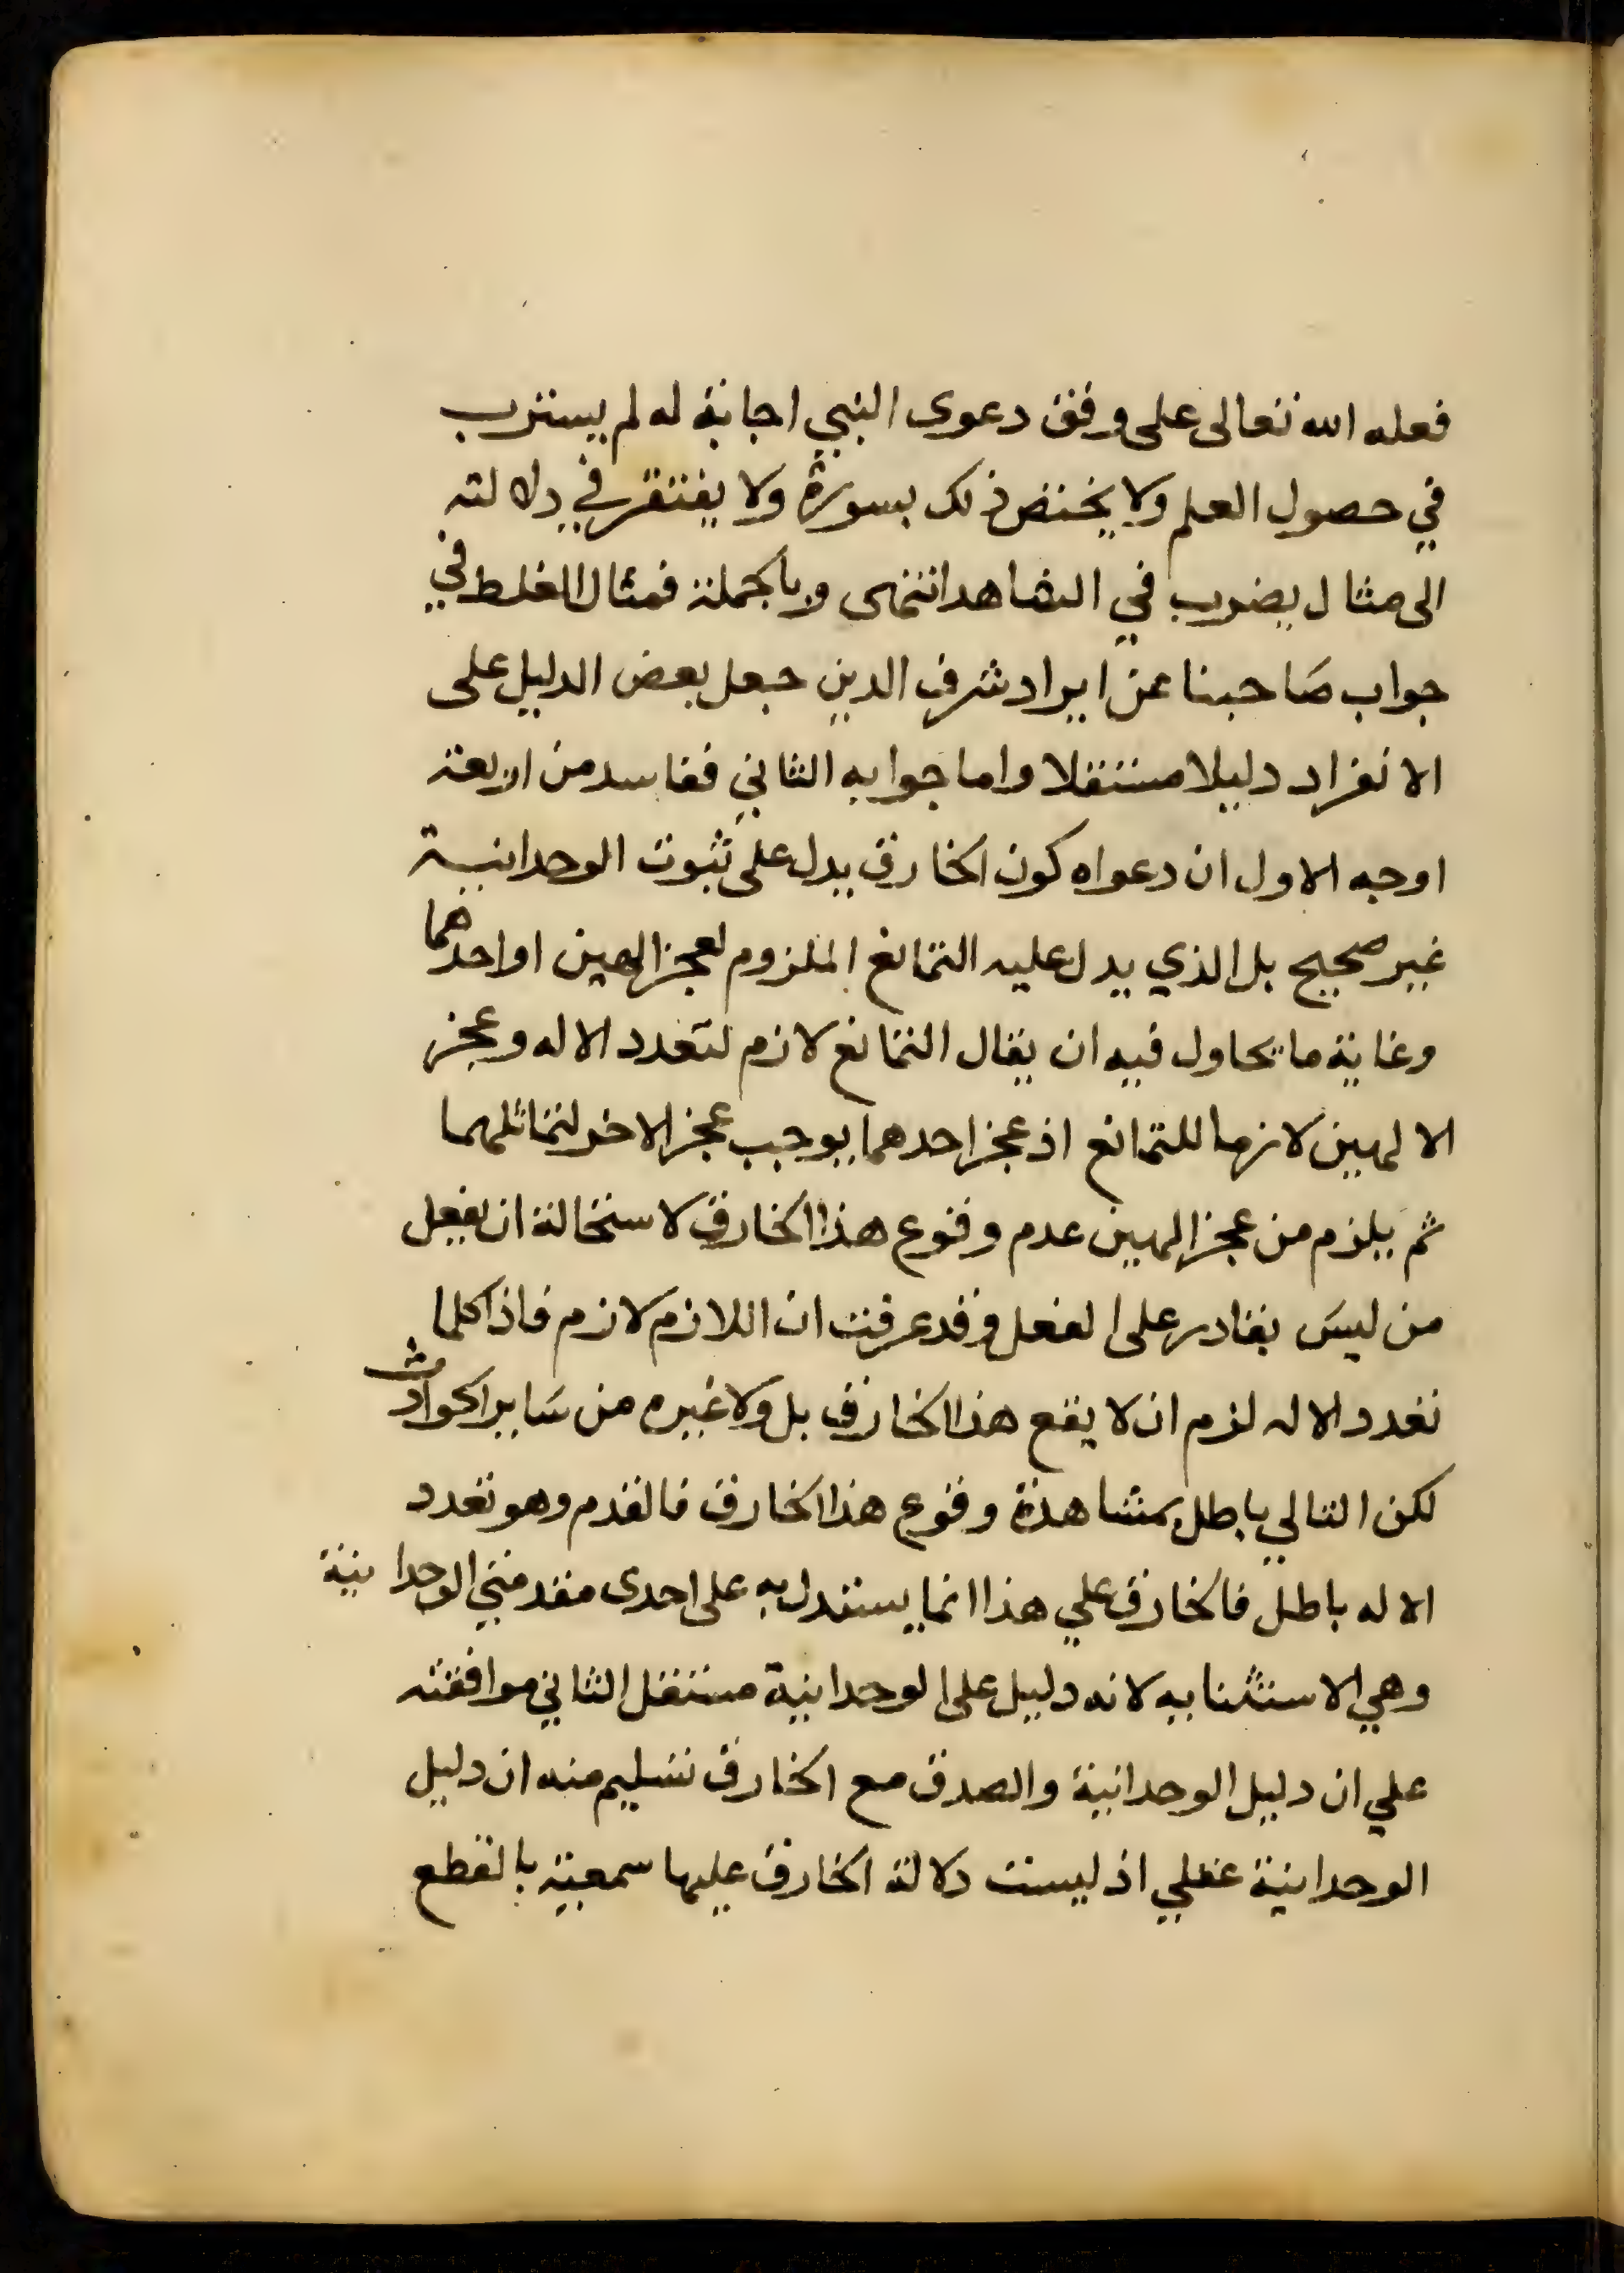 فعله الله تعالى على وفق دعوى النبي اجابة له لم يسترب
في حصول العلم ولا يختص ذلك بسورة ولا يفتقر في دلالته
الى مثال يضرب في الشاهد انتهى وبالجملة فمثال الغلط في
جواب صاحبنا عن ايراد شرف الدين جعل بعض الدليل على
الانفراد دليلا مستقلا واما جوابه الثاني ففاسد من اربعة
اوجه الاول ان دعواه كون الخارق يدل على ثبوت الوحدانية
غير صحيح بل الذي يدل عليه التمانع الملزوم لعجز الهين او احدهما
وغاية ما يحاول فيه ان يقال التمانع لازم لتعدد الاله وعجز
الالهين لازما للتمانع اذ عجز احدهما يوجب عجز الاخر لتماثلهما
ثم يلزم من عجز الهين عدم وقوع هذا الخارق لاستحالة ان يفعل
من ليس بقادر على الفعل وقد عرفت ان اللازم لازم فاذا كلما
تعدد الاله لزم ان لا يقع هذا الخارق بل ولا غيره من ساير الحوادث
لكن التالي باطل بمشاهدة وقوع هذا الخارق فالمقدم وهو تعدد
الاله باطل فالخارق علي هذا انما يستدل به على احدى مقدمتي الوحدانية
وهي الاستثنا بيه لانه دليل على الوحدانية مستقل الثاني موافقته
علي ان دليل الوحدانية والصدق مع الخارق تسليم منه ان دليل
الوحدانية عقلي اذ ليست دلالة الخارق عليها سمعية بالقطع